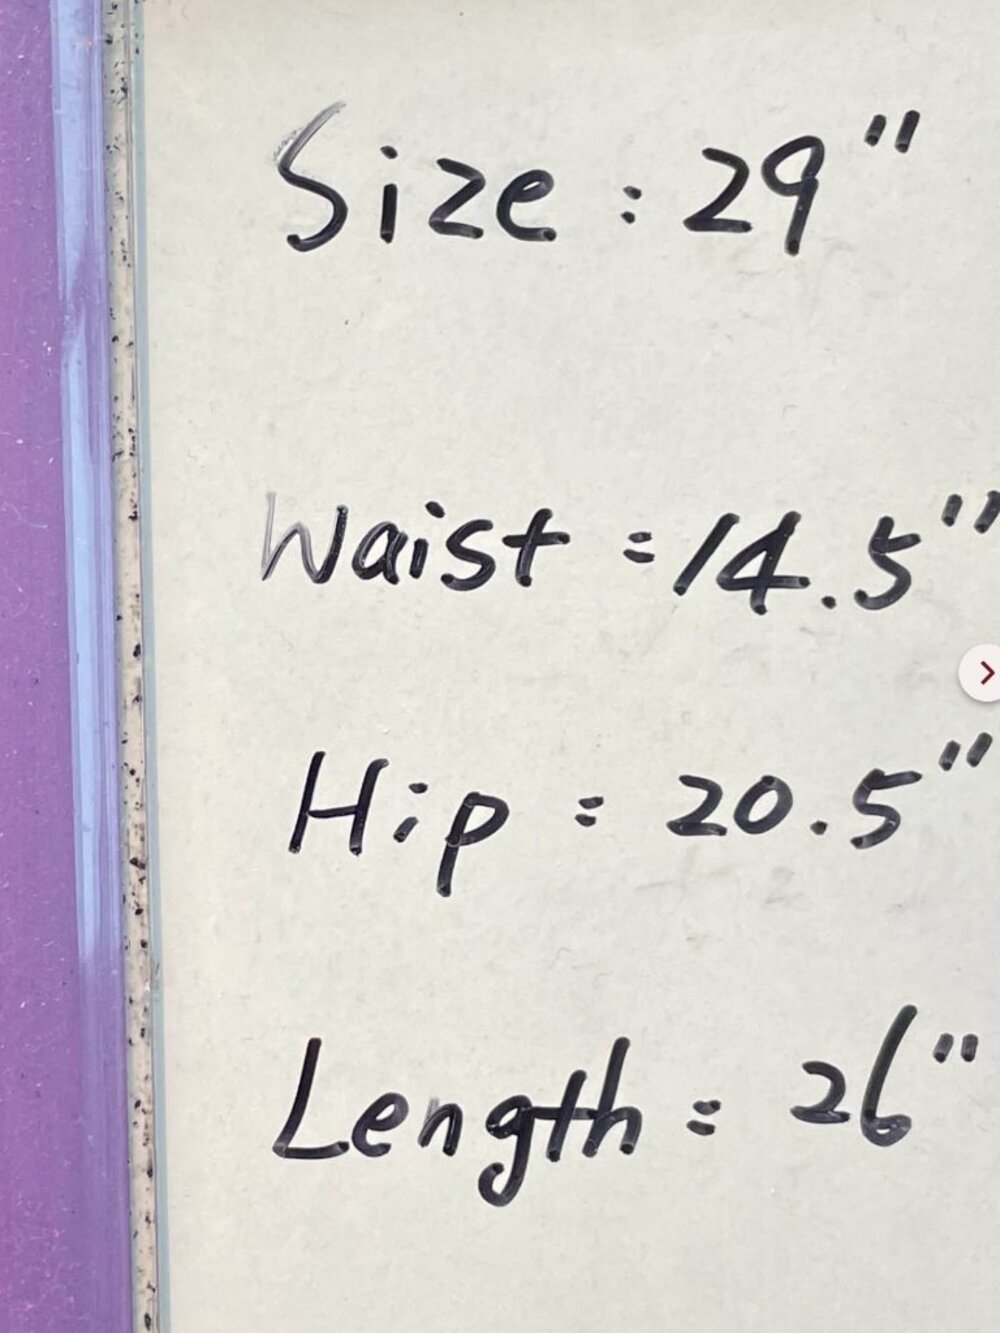 Size : 29"
Waist = 14.5"
Hip = 20.5"
Length = 26"